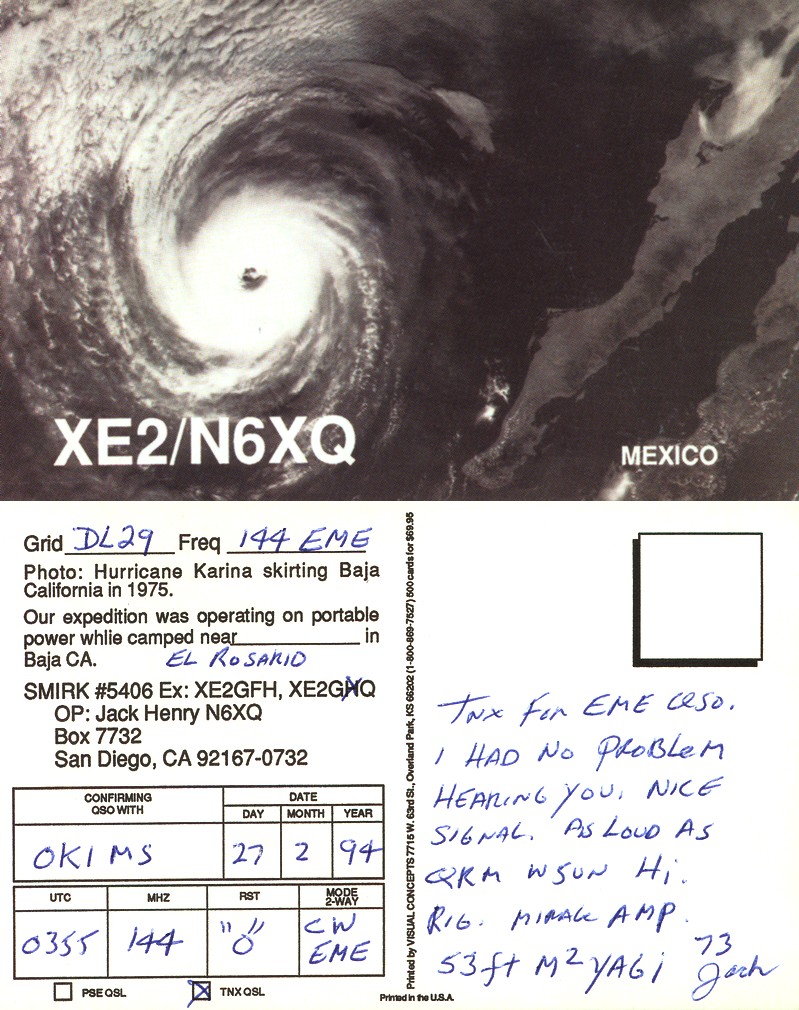 XE2/N6XQ
MEXICO
Grid DL29 Freq 144 EME
Photo: Hurricane Karina skirting Baja
California in 1975.
Our expedition was operating on portable
power whlie camped near in
Baja CA. EL ROSARIO
SMIRK #5406 Ex: XE2GFH, XE2GXQ
OP: Jack Henry N6XQ
Box 7732
San Diego, CA 92167-0732
CONFIRMING
QSO WITH
DATE
DAY MONTH YEAR
OK1MS 27 2 94
UTC MHZ RST MODE
2-WAY
0355 144 "O" CW
EME
PSE QSL TNX QSL
Printed by VISUAL CONCEPTS 7715 W. 63rd St., Overland Park, KS 66202 (1-800-869-7527) 500 cards for $69.95
Printed in the U.S.A.
TNX FOR EME QSO.
I HAD NO PROBLEM
HEARING YOU. NICE
SIGNAL. AS LOUD AS
QRM W5UN HI.
RIG. MIRAGE AMP.
53ft M2 YAGI 73
Jack